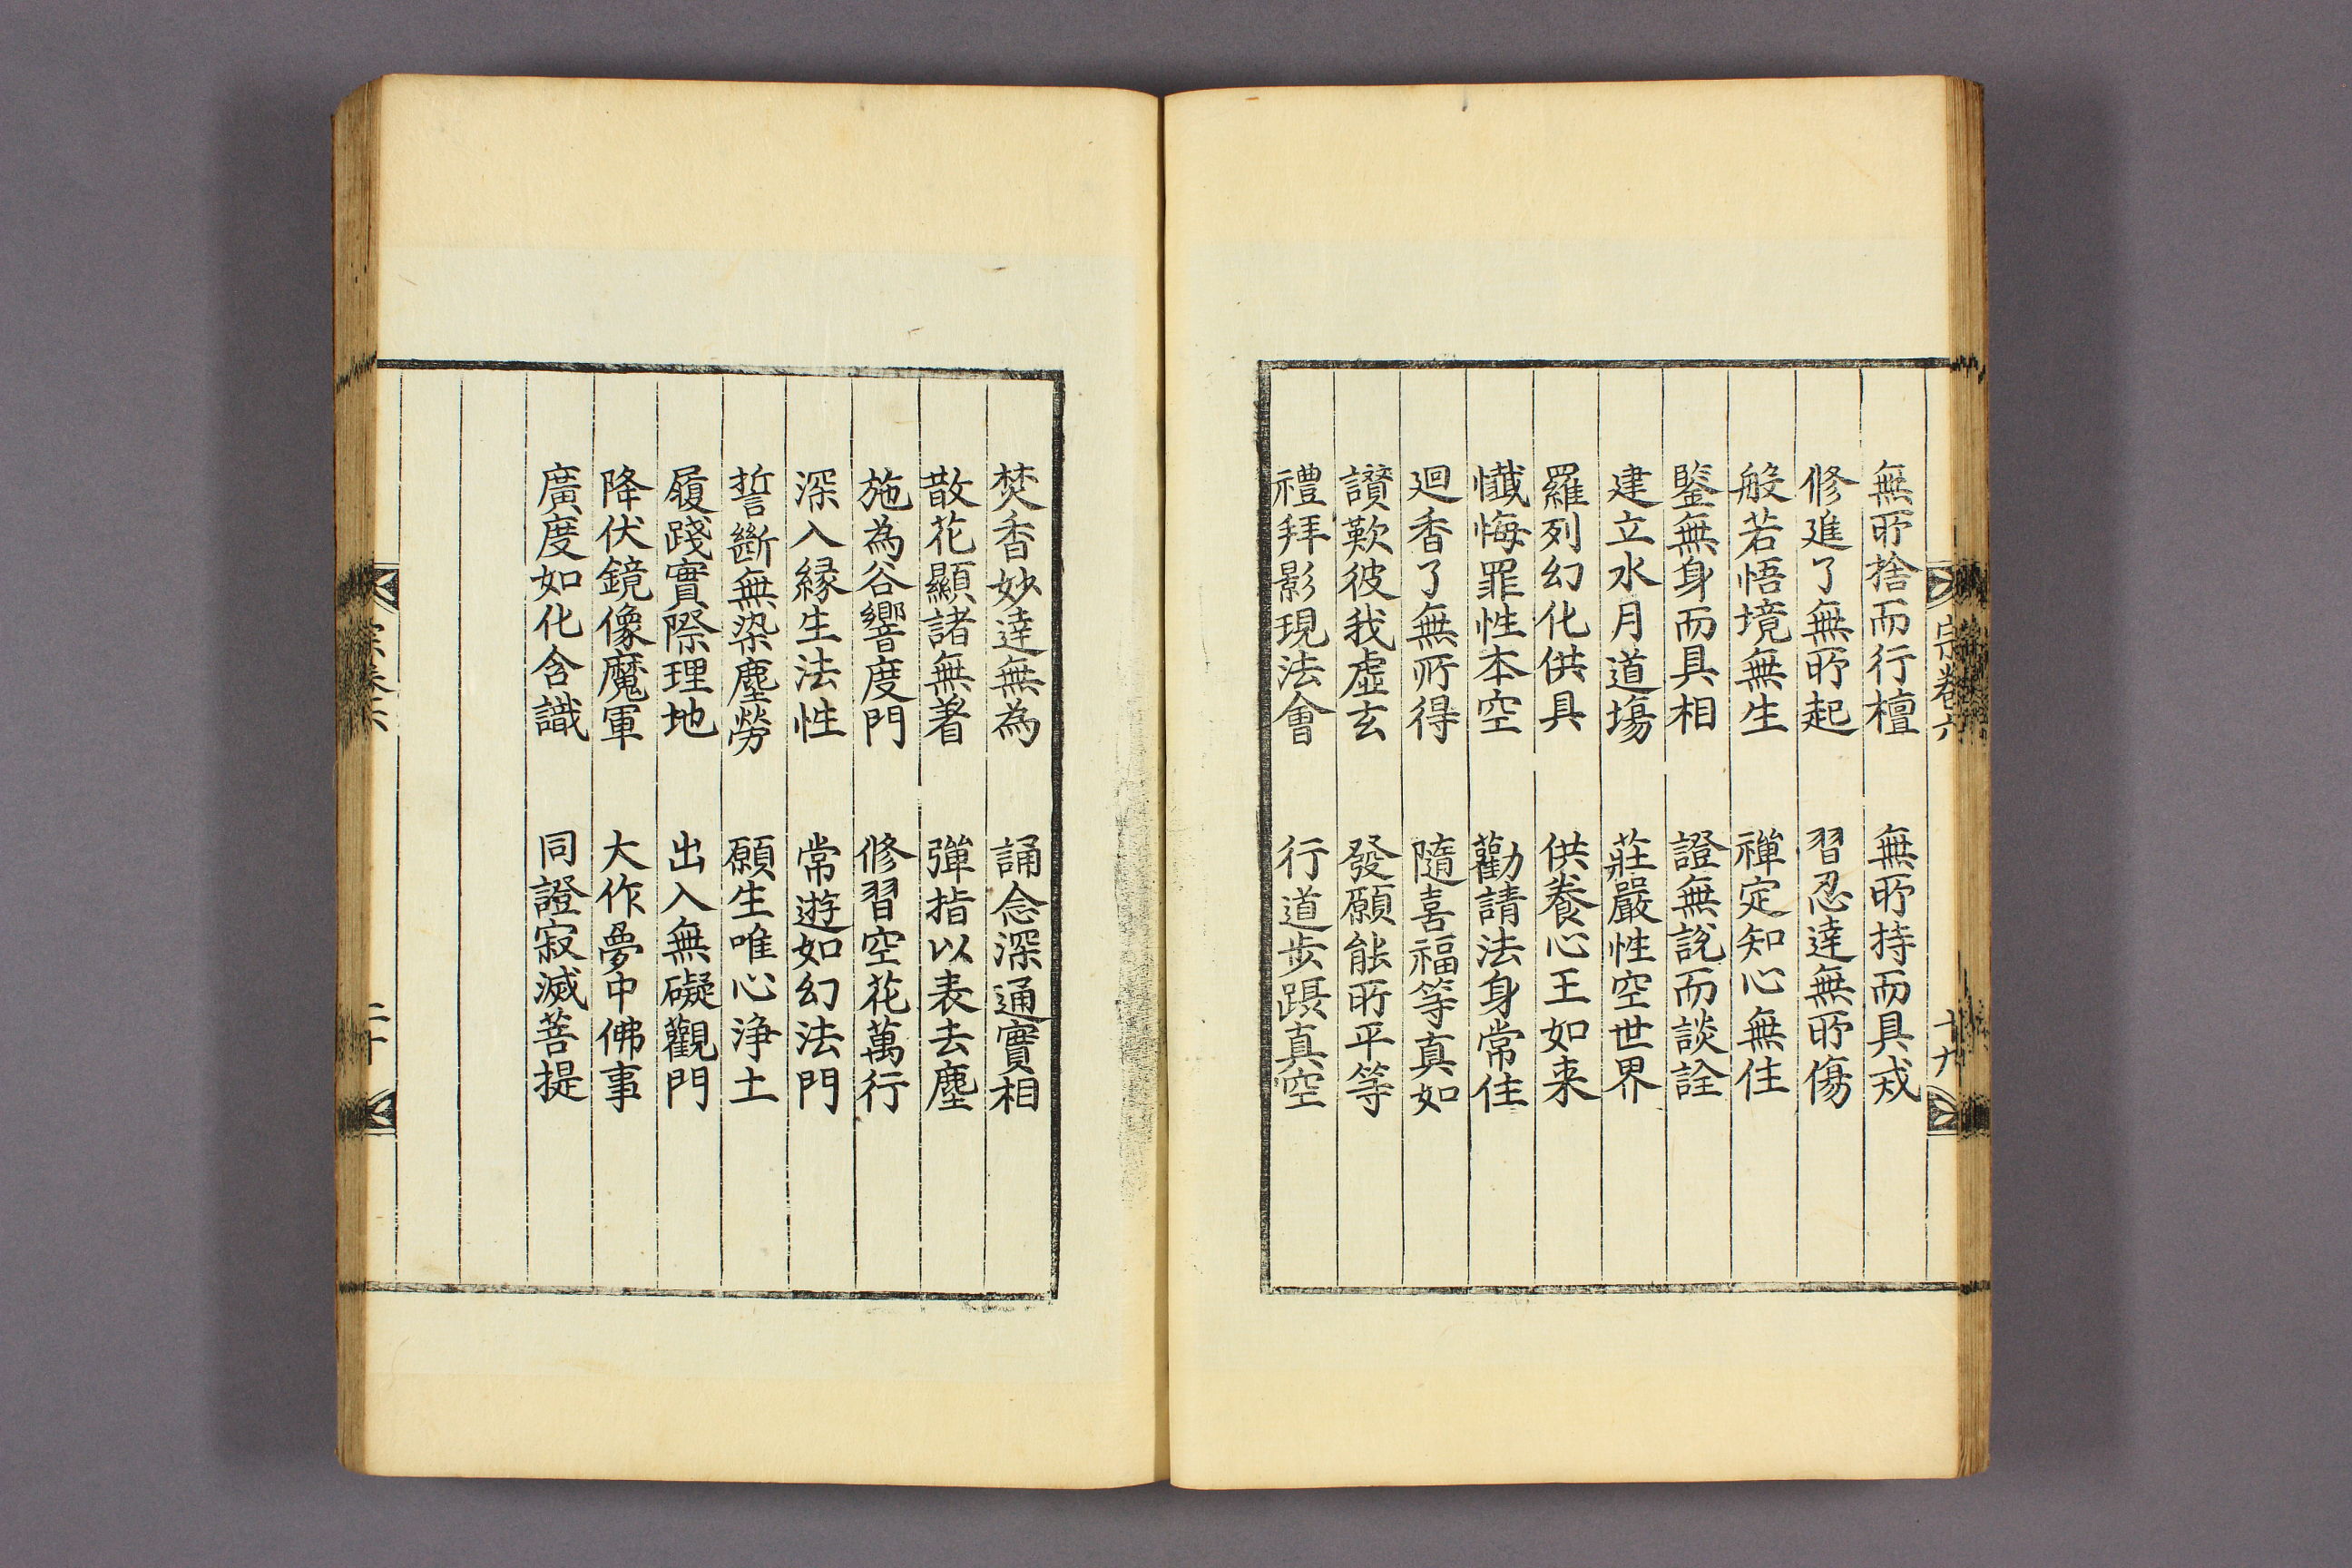 宗卷六
十九
無所捨而行檀 無所持而具戒
修進了無所起 習忍達無所傷
般若悟境無生 禪定知心無住
鑒無身而具相 證無說而談詮
建立水月道場 莊嚴性空世界
羅列幻化供具 供養心王如来
懺悔罪性本空 勸請法身常住
迴香了無所得 隨喜福等真如
讃歎彼我虛玄 發願能所平等
禮拜影現法會 行道步躡真空
焚香妙達無為 誦念深通實相
散花顯諸無著 彈指以表去塵
施為谷響度門 修習空花萬行
深入緣生法性 常遊如幻法門
誓斷無染塵勞 願生唯心淨土
履踐實際理地 出入無礙觀門
降伏鏡像魔軍 大作夢中佛事
廣度如化含識 同證寂滅菩提
二十